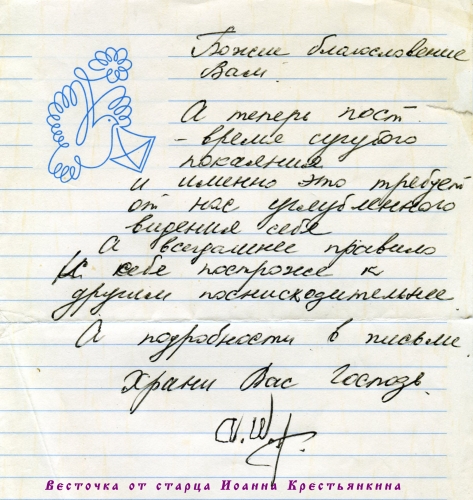 Божие благословение
Вам.
А теперь пост
- время сугубого
покаяния
и именно это требует
от нас углубленного
видения себя
А всегдашнее правило
К себе построже к
другим поснисходительнее.
А подробности в письме.
Храни Вас Господь.
Весточка от старца Иоанна Крестьянкина